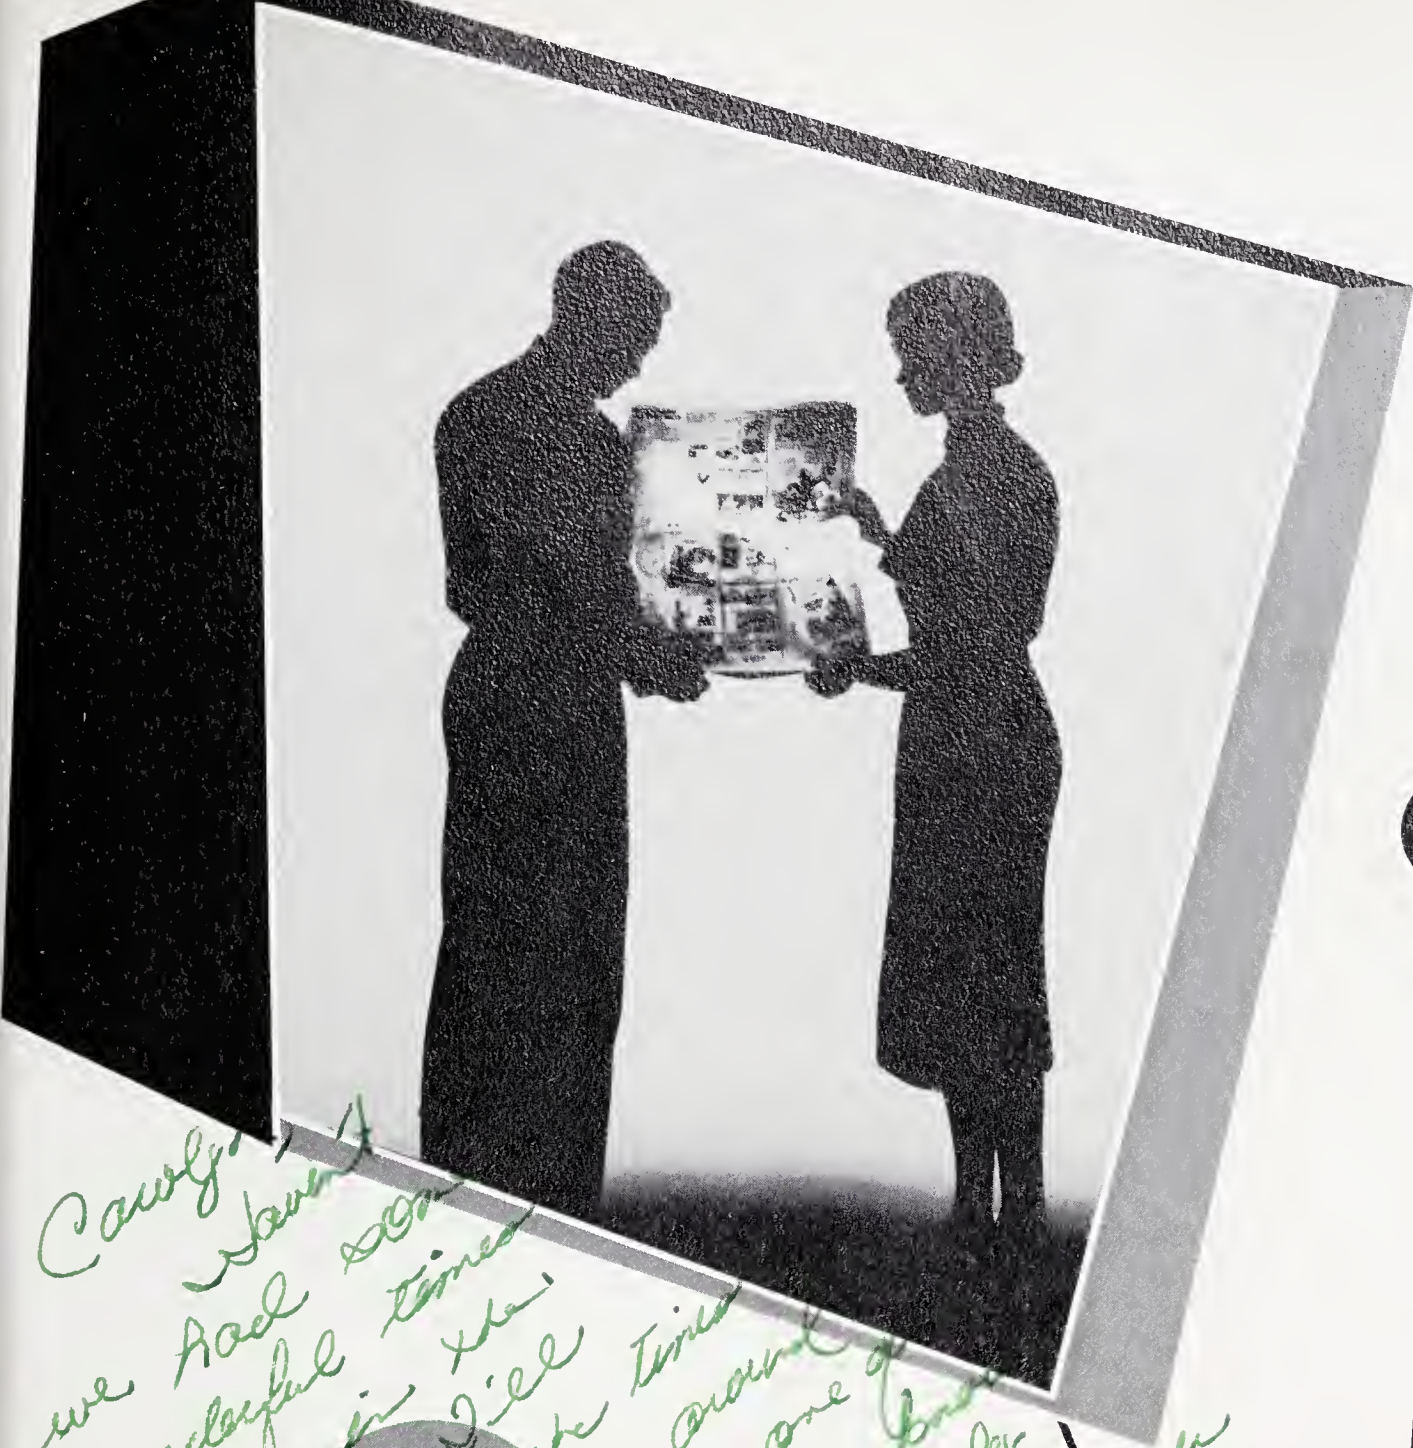 Carolyn,
Haven't
we had som
derful times
in the
Jill
he times
around
one of